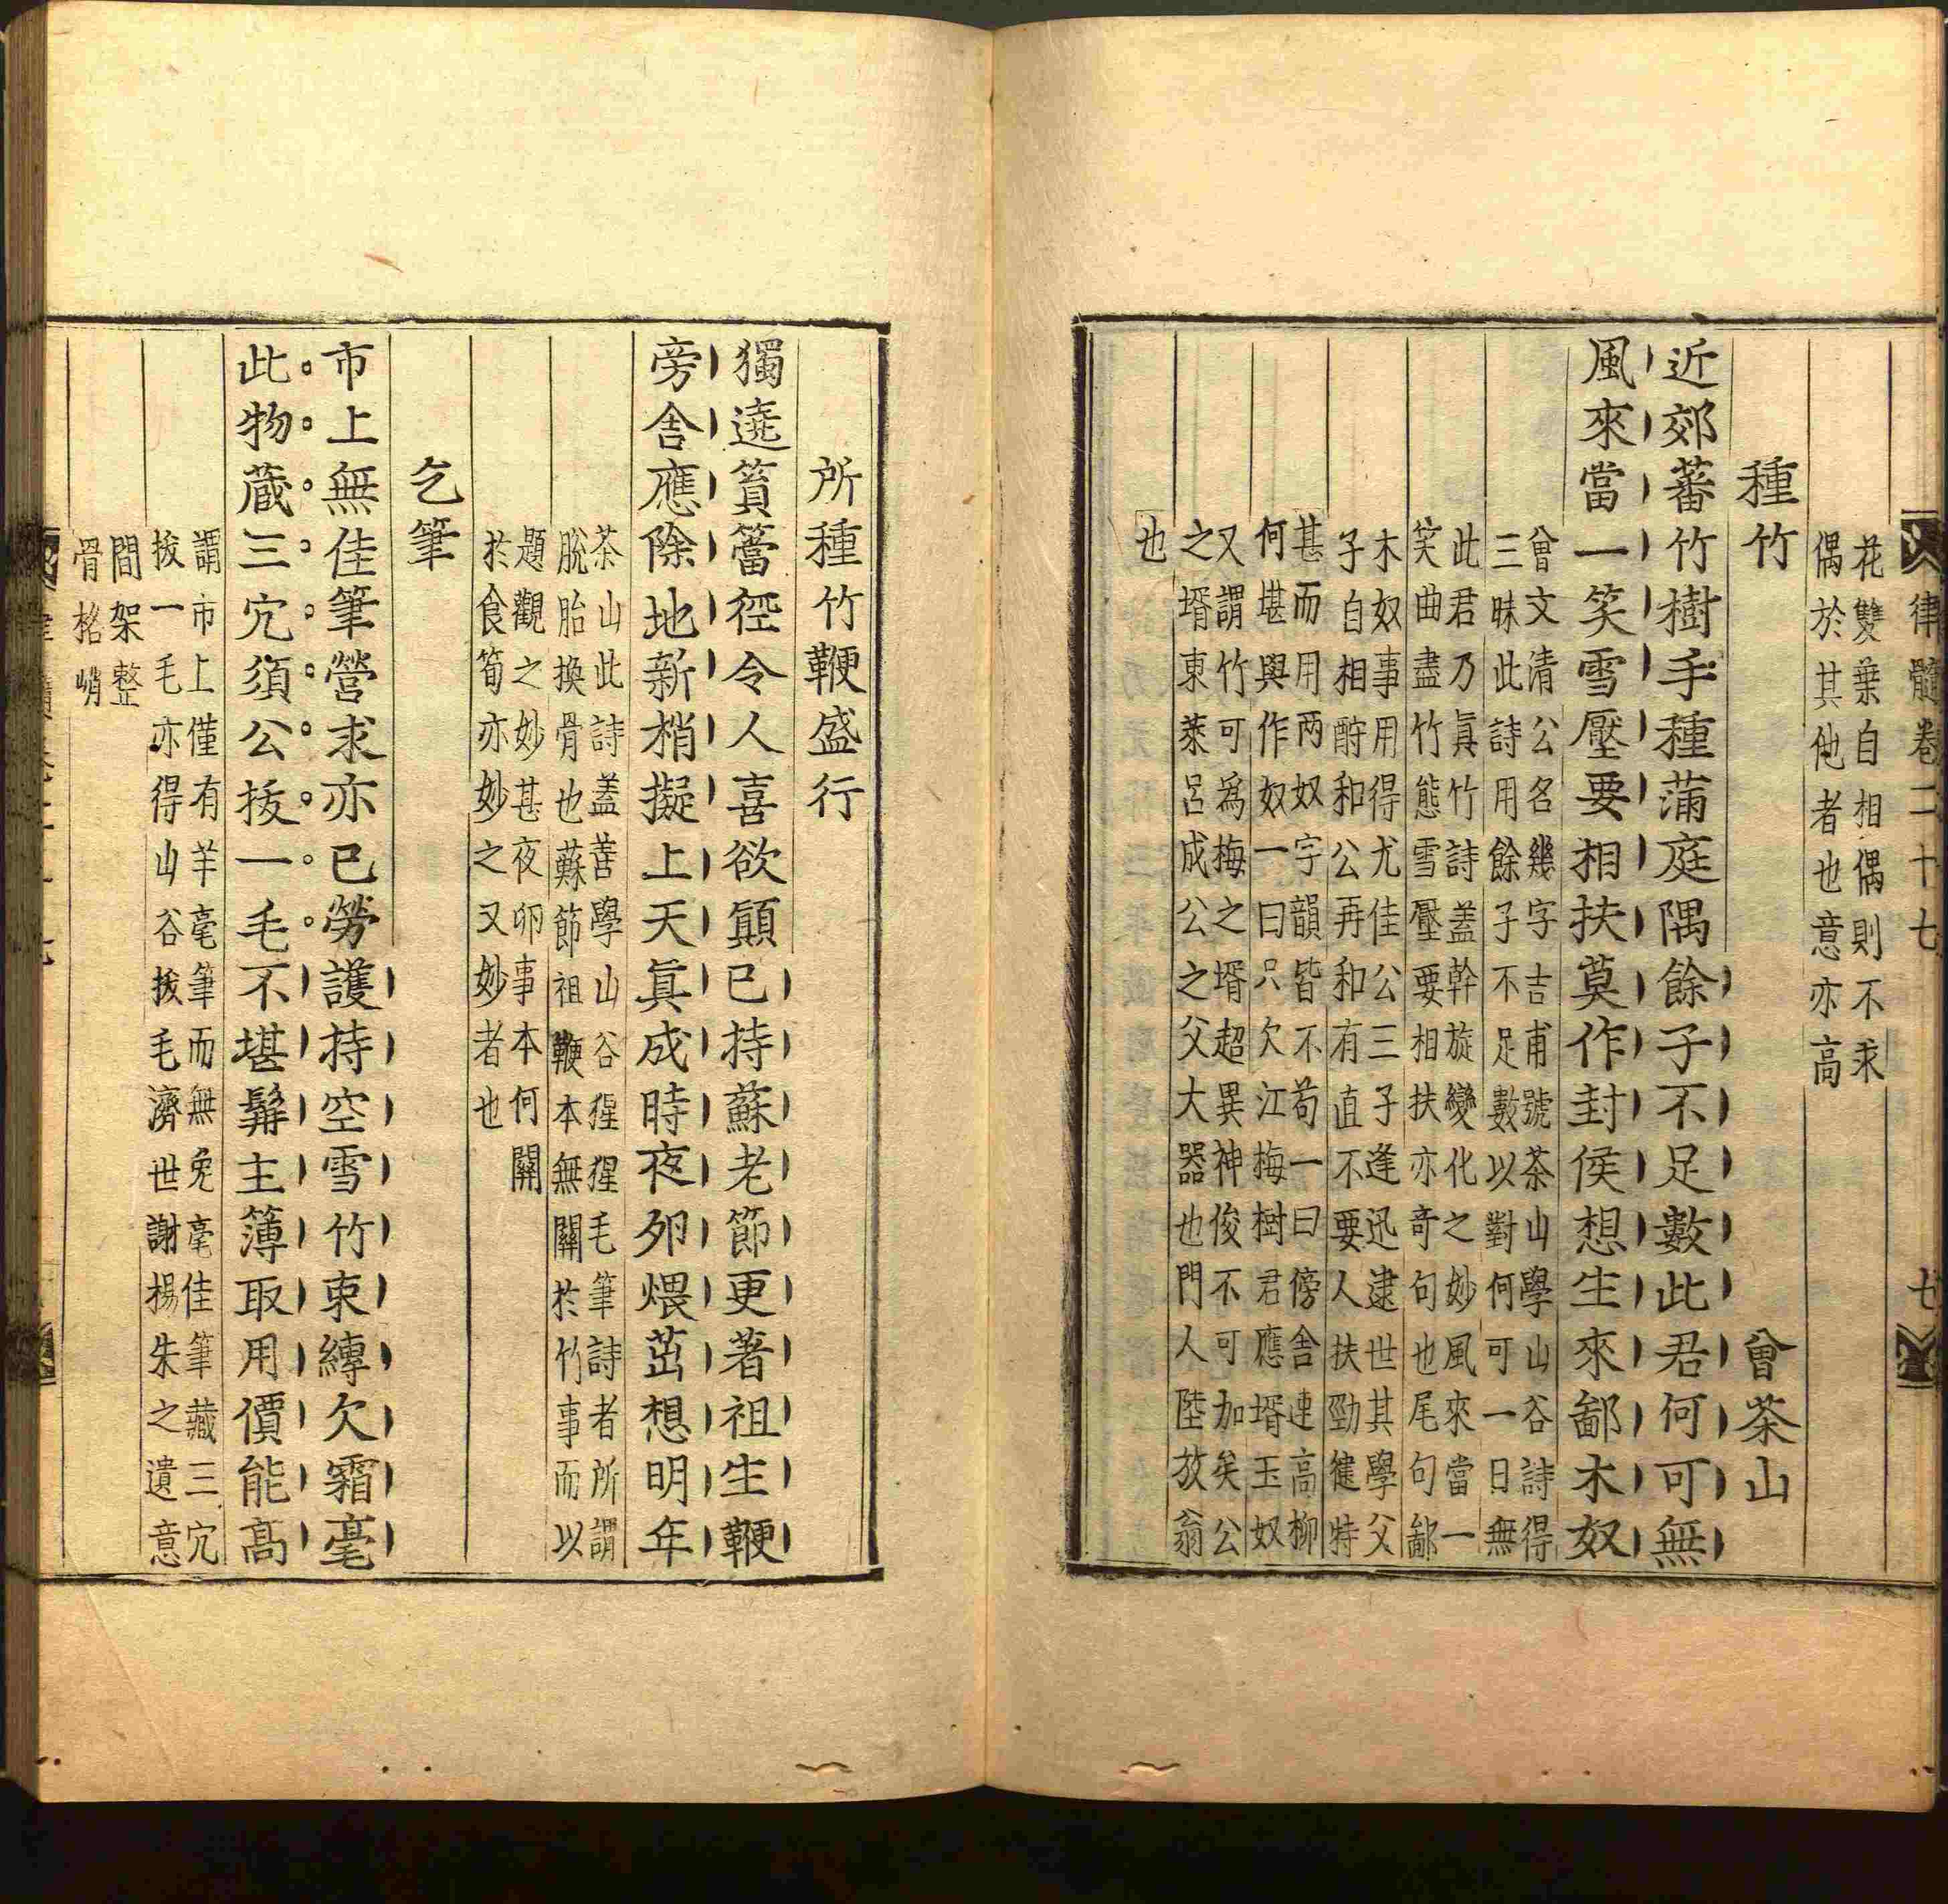 律髓卷二十七
七
花雙葉自相偶則不求
偶於其他者也意亦高
種竹
曾茶山
近郊蕃竹樹手種蒲庭隅餘子不足數此君何可無
風來當一笑雪壓要相扶莫作封侯想生來鄙木奴
曾文清公名幾字吉甫號茶山學山谷詩得
三昧此詩用餘子不足數以對何可一日無
此君乃眞竹詩蓋幹旋變化之妙風來當一
笑曲盡竹態雪壓要相扶亦奇句也尾句鄙
木奴事用得尤佳公三子逢迅逮世其學父
子自相酧和公再和有直不要人扶勁健特
甚而用两奴字韻皆不苟一曰傍舍連高柳
何堪與作奴一曰只欠江梅樹君應壻玉奴
又謂竹可爲梅之壻超異神俊不可加矣公
之壻東萊呂成公之父大器也門人陸放翁
也
所種竹鞭盛行
獨遶篔簹徑令人喜欲顚已持蘇老節更著祖生鞭
旁舍應除地新梢擬上天眞成時夜夘煨茁想明年
茶山此詩蓋善學山谷猩猩毛筆詩者所謂
脫胎換骨也蘇節祖鞭本無關於竹事而以
題觀之妙甚夜卵事本何關
於食筍亦妙之又妙者也
乞筆
市上無佳筆營求亦已勞護持空雪竹束縳欠霜毫
此物蔵三宂須公拔一毛不堪髯主簿取用價能髙
謂市上僅有羊毫筆而無兔毫佳筆藏三宂
拔一毛亦得山谷拔毛濟世謝楊朱之遺意
間架整
骨格峭